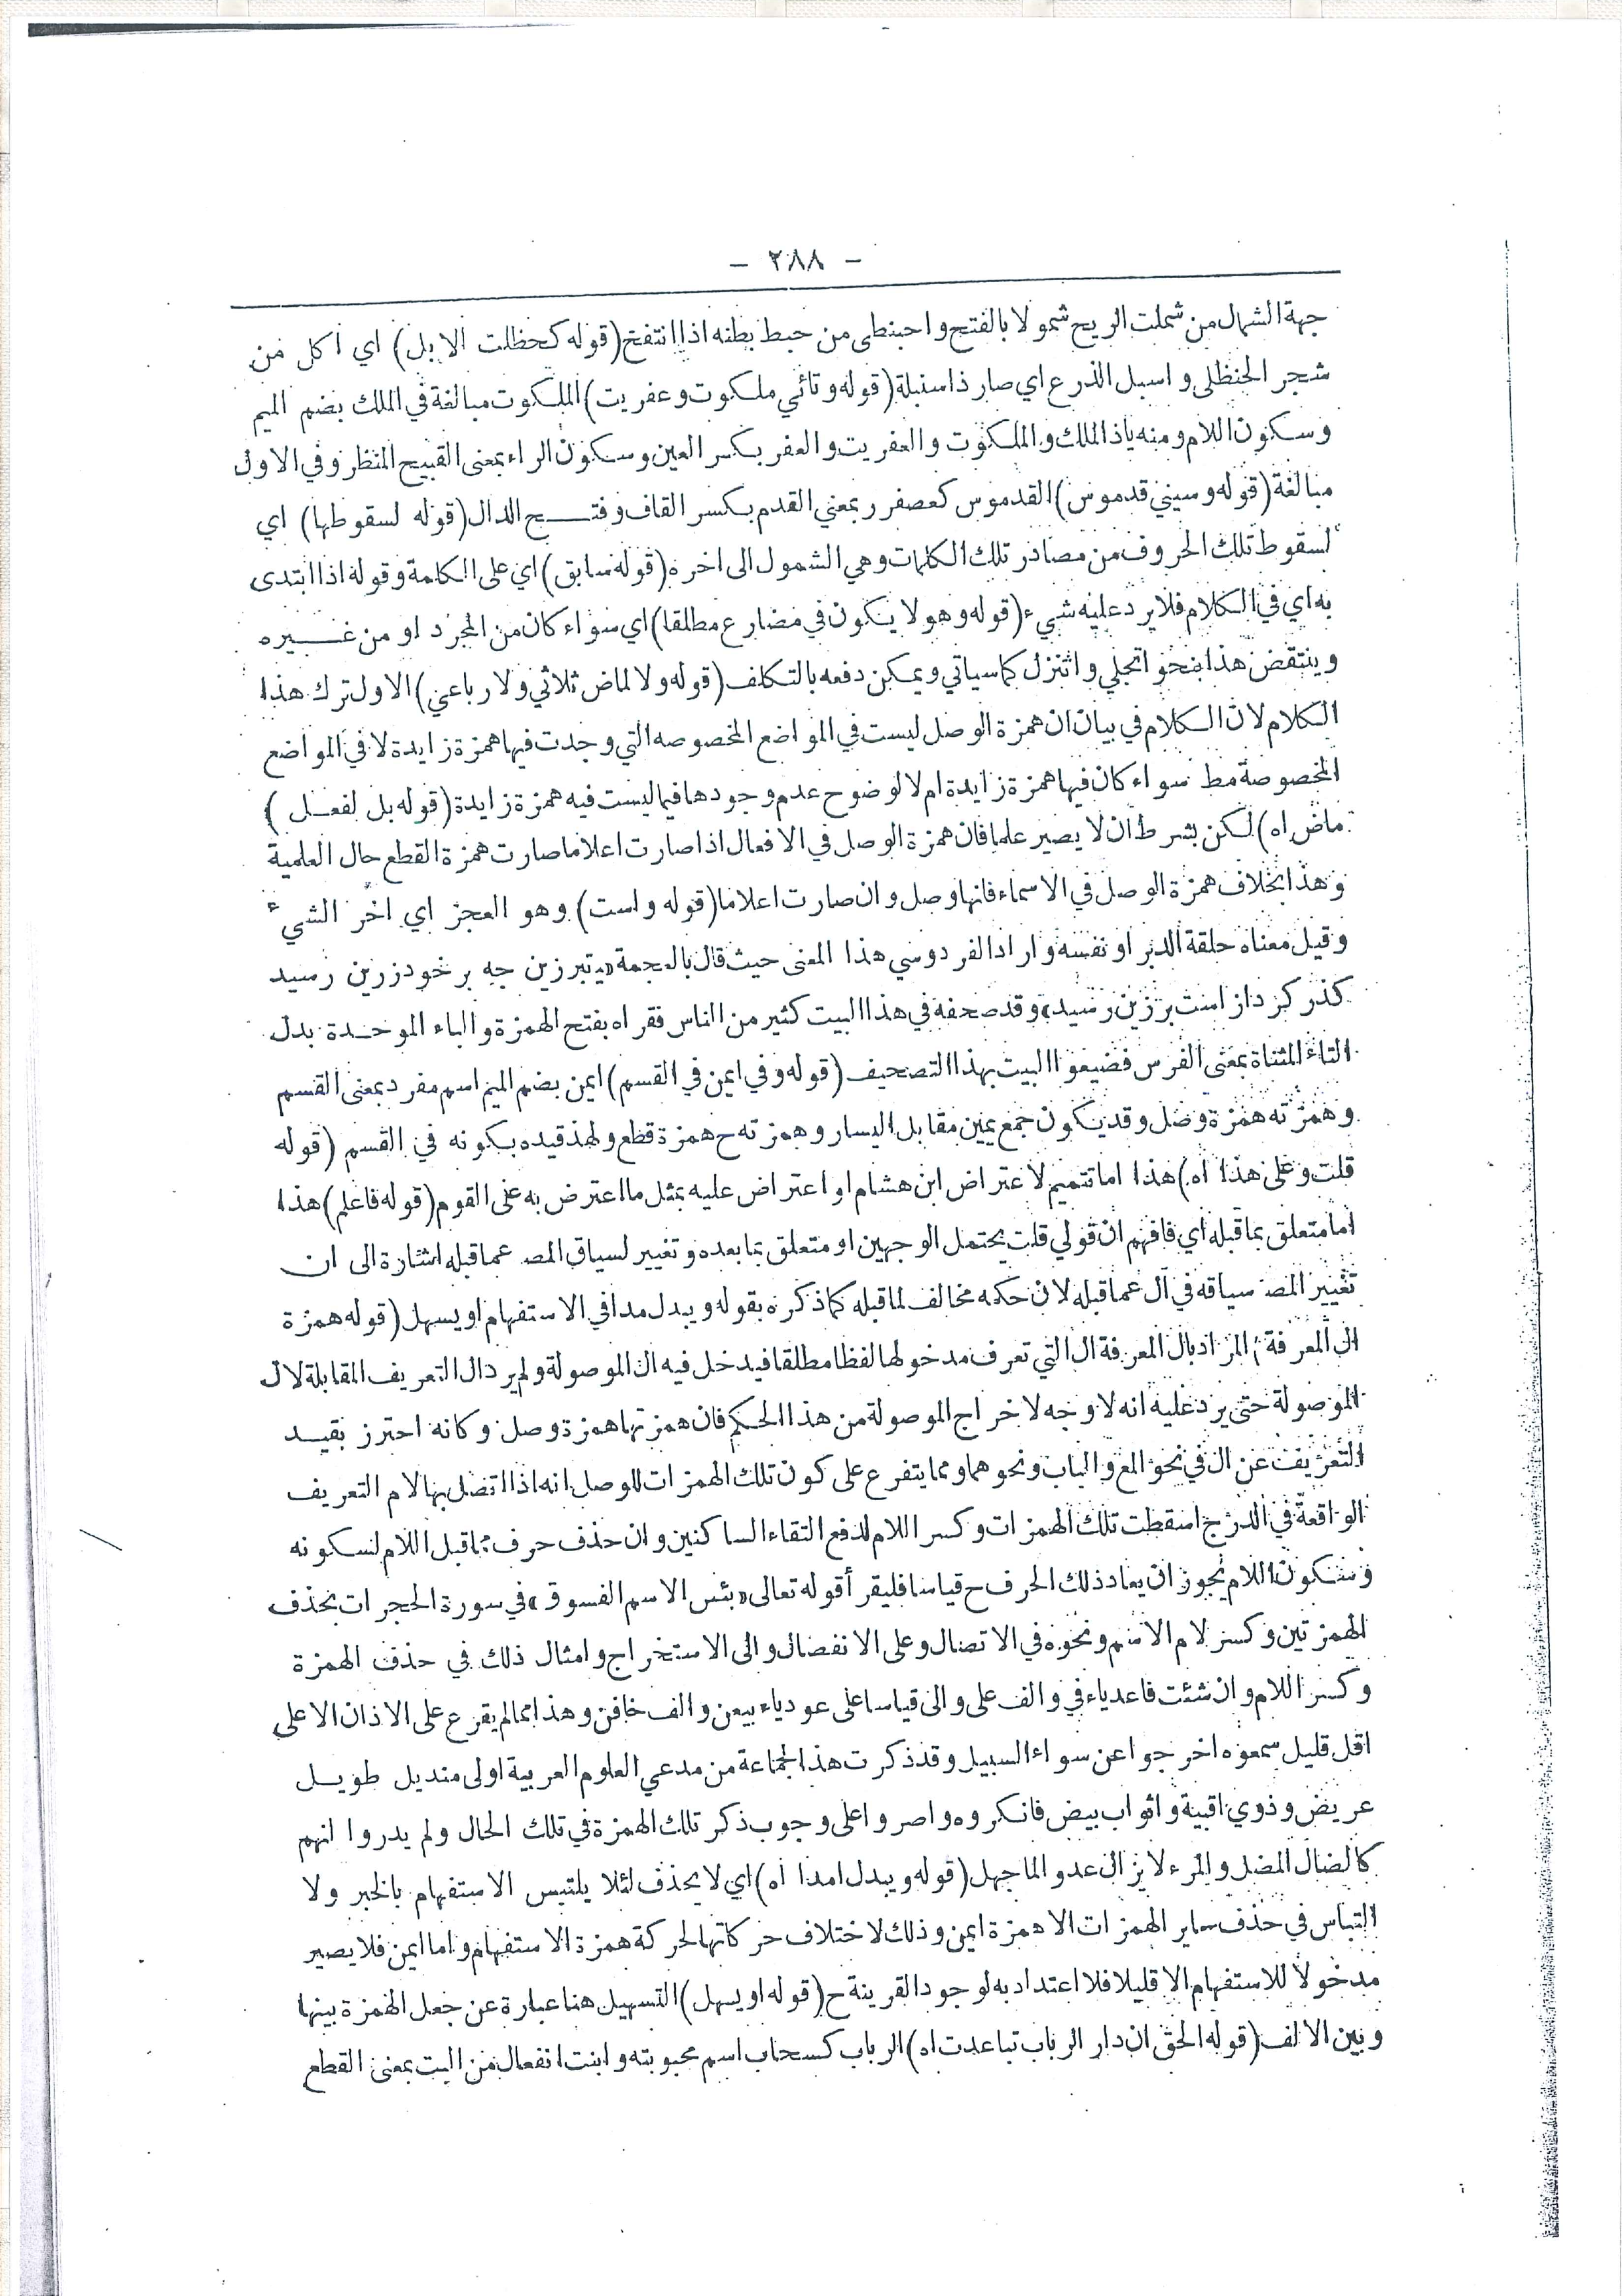 - ٢٨٨ -
جهة الشمال من شملت الريح شمولا بالفتح واحبنطى من حبط بطنه اذا انتفخ (قوله كحظلت الابل) اي اكل من
شجر الحنظلى واسبل الذرع اي صار ذا سنبلة (قوله وتائي ملكوت وعفريت) الملكوت مبالغة في الملك بضم الميم
وسكون اللام ومنه ياذا الملك والملكوت والعفريت والعفر بكسر العين وسكون الراء بمعنى القبيح المنظر وفي الاول
مبالغة (قوله وسيني قدموس) القدموس كعصفور بمعني القدم بكسر القاف وفتـــح الدال (قوله لسقوطها) اي
لسقوط تلك الحروف من مصادر تلك الكلمات وهي الشمول الى اخره (قوله سابق) اي على الكلمة وقوله اذا ابتدى
به اي في الكلام فلا يرد عليه شيء (قوله وهو لا يكون في مضارع مطلقا) اي سواء كان من المجرد او من غـــيره
وينتقض هذا بنحو اتجلي واتنزل كما سياتي ويمكن دفعه بالتكلف (قوله ولا لماض ثلاثي ولا رباعي) الاول ترك هذا
الكلام لان الكلام في بيان ان همزة الوصل ليست في المواضع المخصوصه التي وجدت فيها همزة زايدة لا في المواضع
المخصوصة مط سواء كان فيها همزة زايدة ام لا لوضوح عدم وجودها فيما ليست فيه همزة زايدة (قوله بل لفعــل )
ماض اه) لكن بشرط ان لا يصير علما فان همزة الوصل في الافعال اذا صارت اعلاما صارت همزة القطع حال العلمية
وهذا بخلاف همزة الوصل في الاسماء فانها وصل وان صارت اعلاما (قوله واست) وهو العجز اي اخر الشيء
وقيل معناه حلقة الدبر او نفسه واراد الفردوسي هذا المعنى حيث قال بالعجمة «بتبرزين جه بر خود زرين رسيد
كذر كرد از است بر زين رسيد» وقد صحفه في هذا البيت كثير من الناس فقراه بفتح الهمزة والباء الموحـدة بدل
التاء المثناة بمعنى الفرس فضيعوا البيت بهذا التصحيف (قوله وفي ايمن في القسم) ايمن بضم الميم اسم مفرد بمعنى القسم
وهمزته همزة وصل وقد يكون جمع يمين مقابل اليسار وهمزته ح همزة قطع ولهذ قيده بكونه في القسم (قوله
قلت وعلى هذا اه) هذا اما تتميم لاعتراض ابن هشام او اعتراض عليه بمثل ما اعترض به على القوم (قوله فاعلم) هذا
اما متعلق بما قبله اي فافهم ان قولي قلت يحتمل الوجهين او متعلق بما بعده وتغيير لسياق المصـ عما قبله اشارة الى ان
تغيير المصـ سياقه في آل عما قبله لان حكمه مخالف لما قبله كما ذكره بقوله ويبدل مدا في الاستفهام او يسهل (قوله همزة
ال المعرفة) المراد بال المعرفة ال التي تعرف مدخولها لفظا مطلقا فيدخل فيه ال الموصولة ولم يرد ال التعريف المقابلة لال
الموصولة حتى يرد عليه انه لا وجه لاخراج الموصولة من هذا الحكم فان همزتها همزة وصل وكانه احترز بقيــد
التعريف عن ال في نحو المع والباب ونحوهما ومما يتفرع على كون تلك الهمزات للوصل انه اذا اتصل بها لام التعريف
الواقعة في الدرج اسقطت تلك الهمزات وكسر اللام لدفع التقاء الساكنين وان حذف حرف مما قبل اللام لسكونه
وسكون اللام يجوز ان يعاد ذلك الحرف ح قياسا فليقرأ قوله تعالى «بئس الاسم الفسوق» في سورة الحجرات بحذف
الهمزتين وكسر لام الاسم ونحوه في الاتصال وعلى الانفصال والى الاستخراج وامثال ذلك في حذف الهمزة
وكسر اللام وان شئت فاعد ياء في والف على والى قياسا على عود ياء بيعن والف خافن وهذا مما لم يقرع على الاذان الا على
اقل قليل سمعوه اخرجوا عن سواء السبيل وقد ذكرت هذا لجماعة من مدعي العلوم العربية اولى منديل طويــل
عريض وذوي اقبية واثواب بيض فانكروه واصروا على وجوب ذكر تلك الهمزة في تلك الحال ولم يدروا انهم
كالضال المضل والمرء لا يزال عدو الما جهل (قوله ويبدل امدا اه) اي لا يحذف لئلا يلتبس الاستفهام بالخبر ولا
التباس في حذف ساير الهمزات الا همزة ايمن وذلك لاختلاف حركاتها لحركة همزة الاستفهام واما ايمن فلا يصير
مدخولا للاستفهام الا قليلا فلا اعتداد به لوجود القرينة ح (قوله او يسهل) التسهيل هنا عبارة عن جعل الهمزة بينها
وبين الالف (قوله الحق ان دار الرباب تباعدت اه) الرباب كسحاب اسم محبوبته وانبت انفعال من البت بمعنى القطع